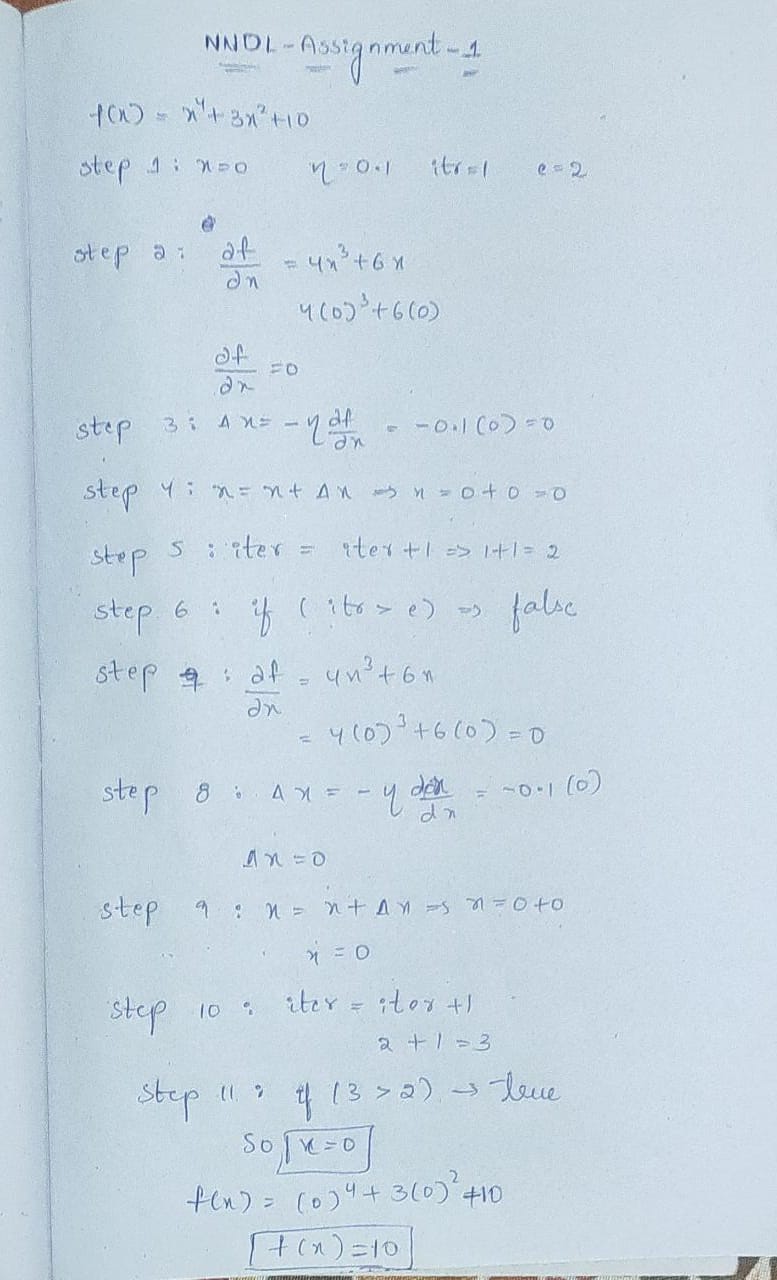 NNDL - Assignment - 1
f(x) = x⁴ + 3x² + 10
step 1 : x=0 η=0.1 itr=1 e=2
step 2 : ∂f/∂x = 4x³ + 6x
4(0)³ + 6(0)
∂f/∂x = 0
step 3 : Δx = -η df/dx = -0.1(0) = 0
step 4 : x = x + Δx => x = 0 + 0 = 0
step 5 : iter = iter + 1 => 1+1 = 2
step 6 : if (itr > e) => false
step 7 : ∂f/∂x = 4x³ + 6x
= 4(0)³ + 6(0) = 0
step 8 : Δx = -η /dx = -0.1(0)
Δx = 0
step 9 : x = x + Δx => x = 0+0
x = 0
step 10 : iter = iter + 1
2 + 1 = 3
step 11 : if (3 > 2) → true
so x=0
f(x) = (0)⁴ + 3(0)² + 10
f(x) = 10